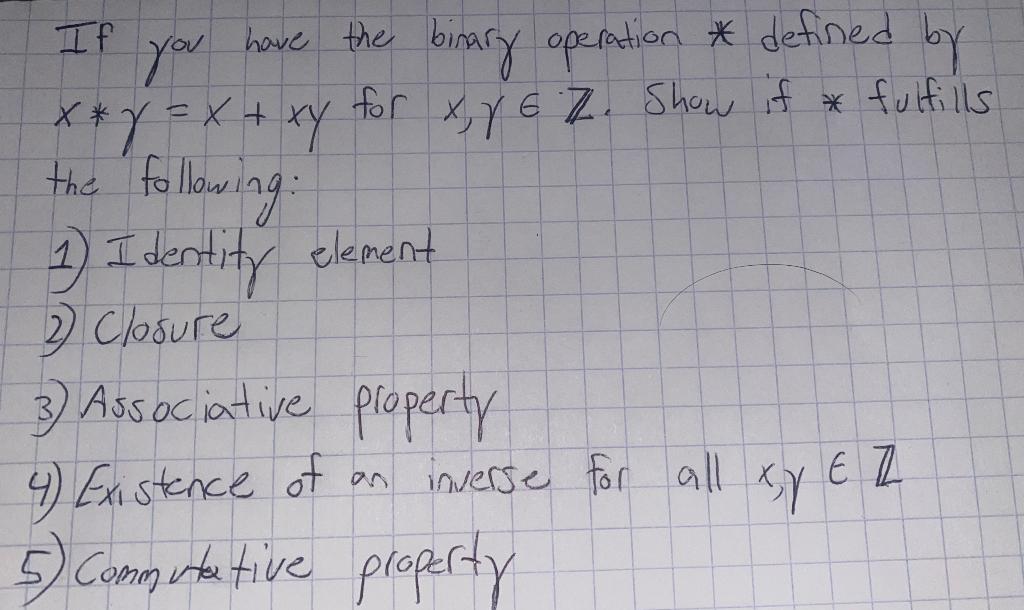 If you have the binary operation * defined by
x * y = x + xy for x, y ∈ ℤ. Show if * fulfills
the following:
1) Identity element
2) Closure
3) Associative property
4) Existence of an inverse for all x, y ∈ ℤ
5) Commutative property